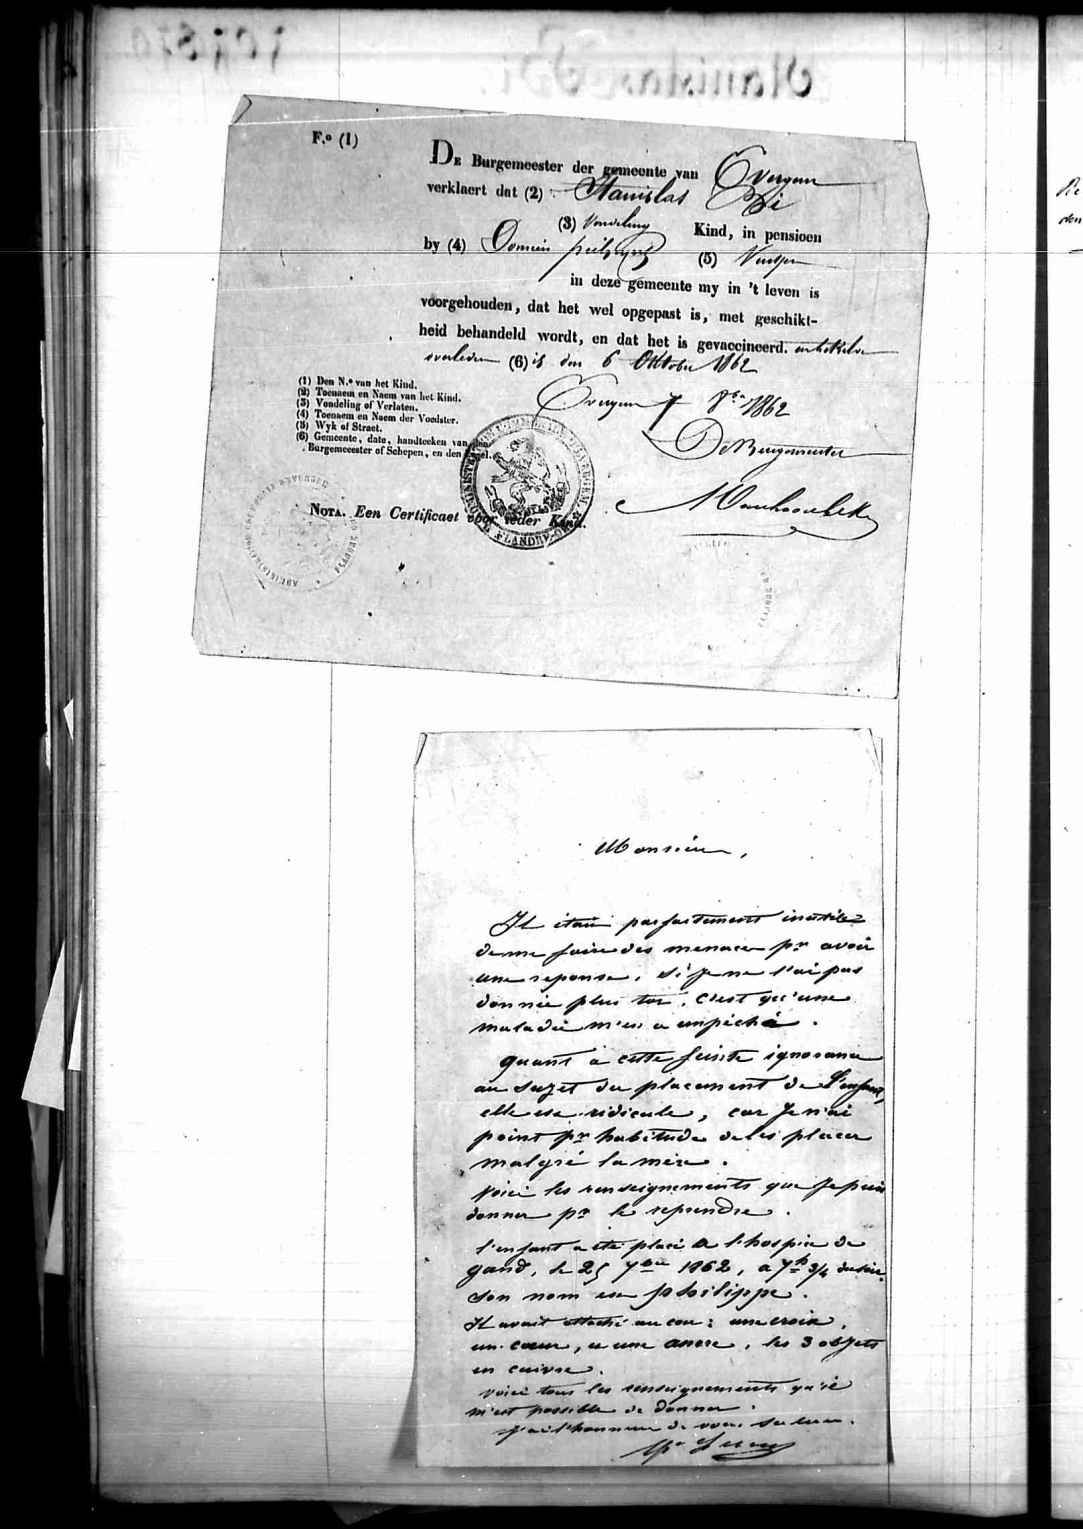 F.º (1)
DE Burgemeester der gemeente van Evergem
verklaert dat (2) Stanislas Bi
(3) Vondeling Kind, in pensioen
by (4) Domien (5)
in deze gemeente my in 't leven is
voorgehouden, dat het wel opgepast is, met geschikt-
heid behandeld wordt, en dat het is gevaccineerd.
overleden (6) is den 6 Oktober 1862
Evergem 7 8bre 1862
De Burgemeester
(1) Den N.º van het Kind.
(2) Toenaem en Naem van het Kind.
(3) Vondeling of Verlaten.
(4) Toenaem en Naem der Voedster.
(5) Wyk of Straet.
(6) Gemeente, date, handteeken van den
Burgemeester of Schepen, en den Zegel.
NOTA. Een Certificaet voor ieder Kind.
Monsieur,
Il était parfaitement inutile
de me faire des menaces pr avoir
une reponse. Si je ne l'ai pas
donnée plus tot, c'est qu'une
maladie m'en a empéché.
quant à cette feinte ignorance
au sujet du placement de l'enfant,
elle est ridicule, car je n'ai
point pr habitude de les placer
malgré la mère.
Voici les renseignements que je puis
donner pr le reprendre.
l'enfant a été placé a l'hospice de
gand, le 25 7bre 1862, a 7h 3/4 du soir.
Son nom est philippe.
Il avait attaché au cou: une croix,
un cœur, et une ancre, les 3 objets
en cuivre.
Voici tous les renseignements qu'il
m'est possible de donner.
J'ai l'honneur de vous saluer.